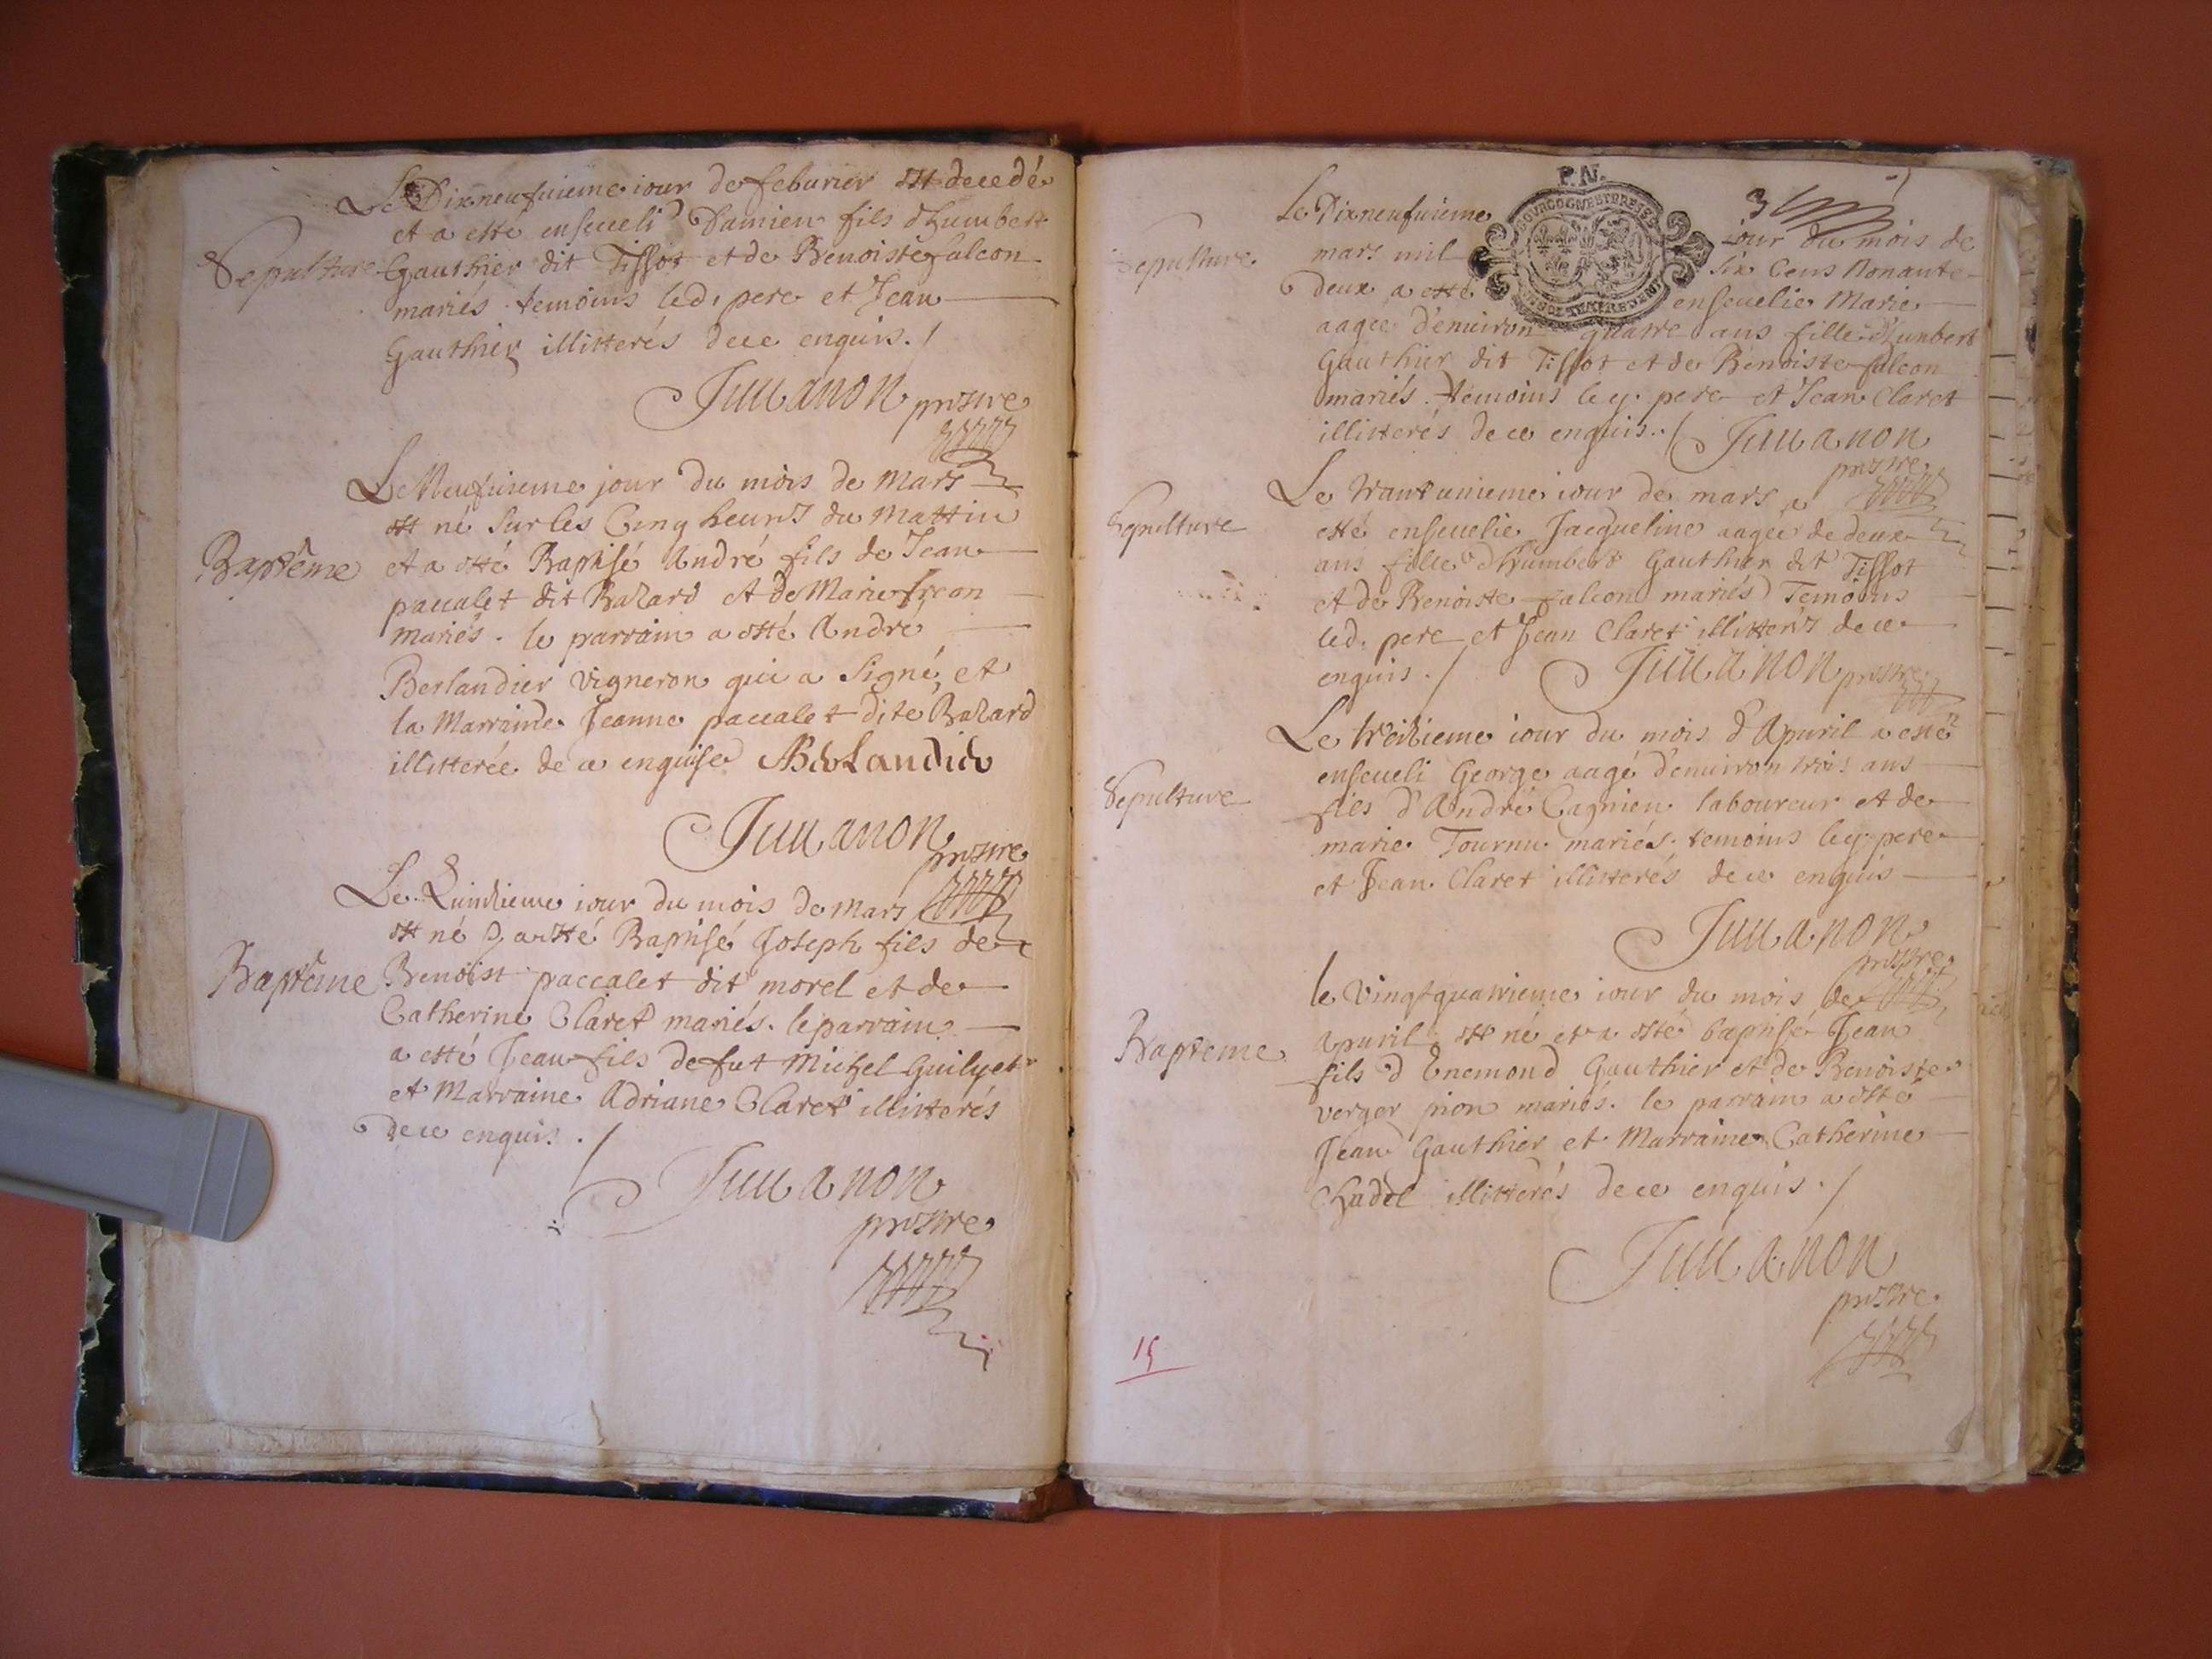 Le Dixneufuieme iour de feburier est decedé
et a esté enseueli Damien fils d'humbert
Sepulture Gauthier dit Tissot et de Benoiste falcon
mariés temoins led. pere et Jean
Gauthier illitterés de ce enquis. /
Juuanon prestre
Le Neufuieme jour du mois de Mars
est né sur les Cinq heures du Mattin
Baptême et a esté Baptisé André fils de Jean
paccalet dit Bazard et de Marie
mariés. le parrain a esté André
Berlandier vigneron qui a signé, et
la Marraine Jeanne paccalet dite Bazard
illitterée de ce enquise ABerlandier
Juuanon
prestre
Le Quinzieme iour du mois de Mars
est né & a esté Baptisé Joseph fils de
Baptême Benoist paccalet dit morel et de
Catherine Claret mariés. le parrain
a esté Jean fils de fut Michel Guilyet
et Marraine Adriane Claret illitterés
de ce enquis. /
Juuanon
prestre
P.N.
BOURGOGNE ET BRESSE
3
Le Dixneufuieme iour du mois de
Sepulture mars mil six Cens Nonante
Deux a esté enseuelie Marie
aagée d'enuiron quatre ans fille d'humbert
Gauthier dit Tissot et de Benoiste falcon
mariés. temoins le y. pere et Jean Claret
illitterés de ce enquis. / Juuanon
prestre
Le trantunieme iour de mars a
Sepulture esté enseuelie Jacqueline aagée de deux
ans fille d'humbert Gauthier dit Tissot
et de Benoiste falcon mariés Temoins
led. pere et Jean Claret illitterés de ce
enquis. / Juuanon prestre
Le treizieme iour du mois d'Apuril a esté
enseueli George aagé d'enuiron trois ans
Sepulture fils d'André Cagnien laboureur et de
marie Tournu mariés. temoins le y. pere
et Jean Claret illitterés de ce enquis
Juuanon
prestre
le vingtquatrieme iour du mois de
Bapteme apuril est né et a esté baptisé Jean
fils d'Enemond Gauthier et de Benoiste
verger pion mariés. le parrain a esté
Jean Gauthier et Marraine Catherine
Chadel illitterés de ce enquis. /
Juuanon
prestre
15